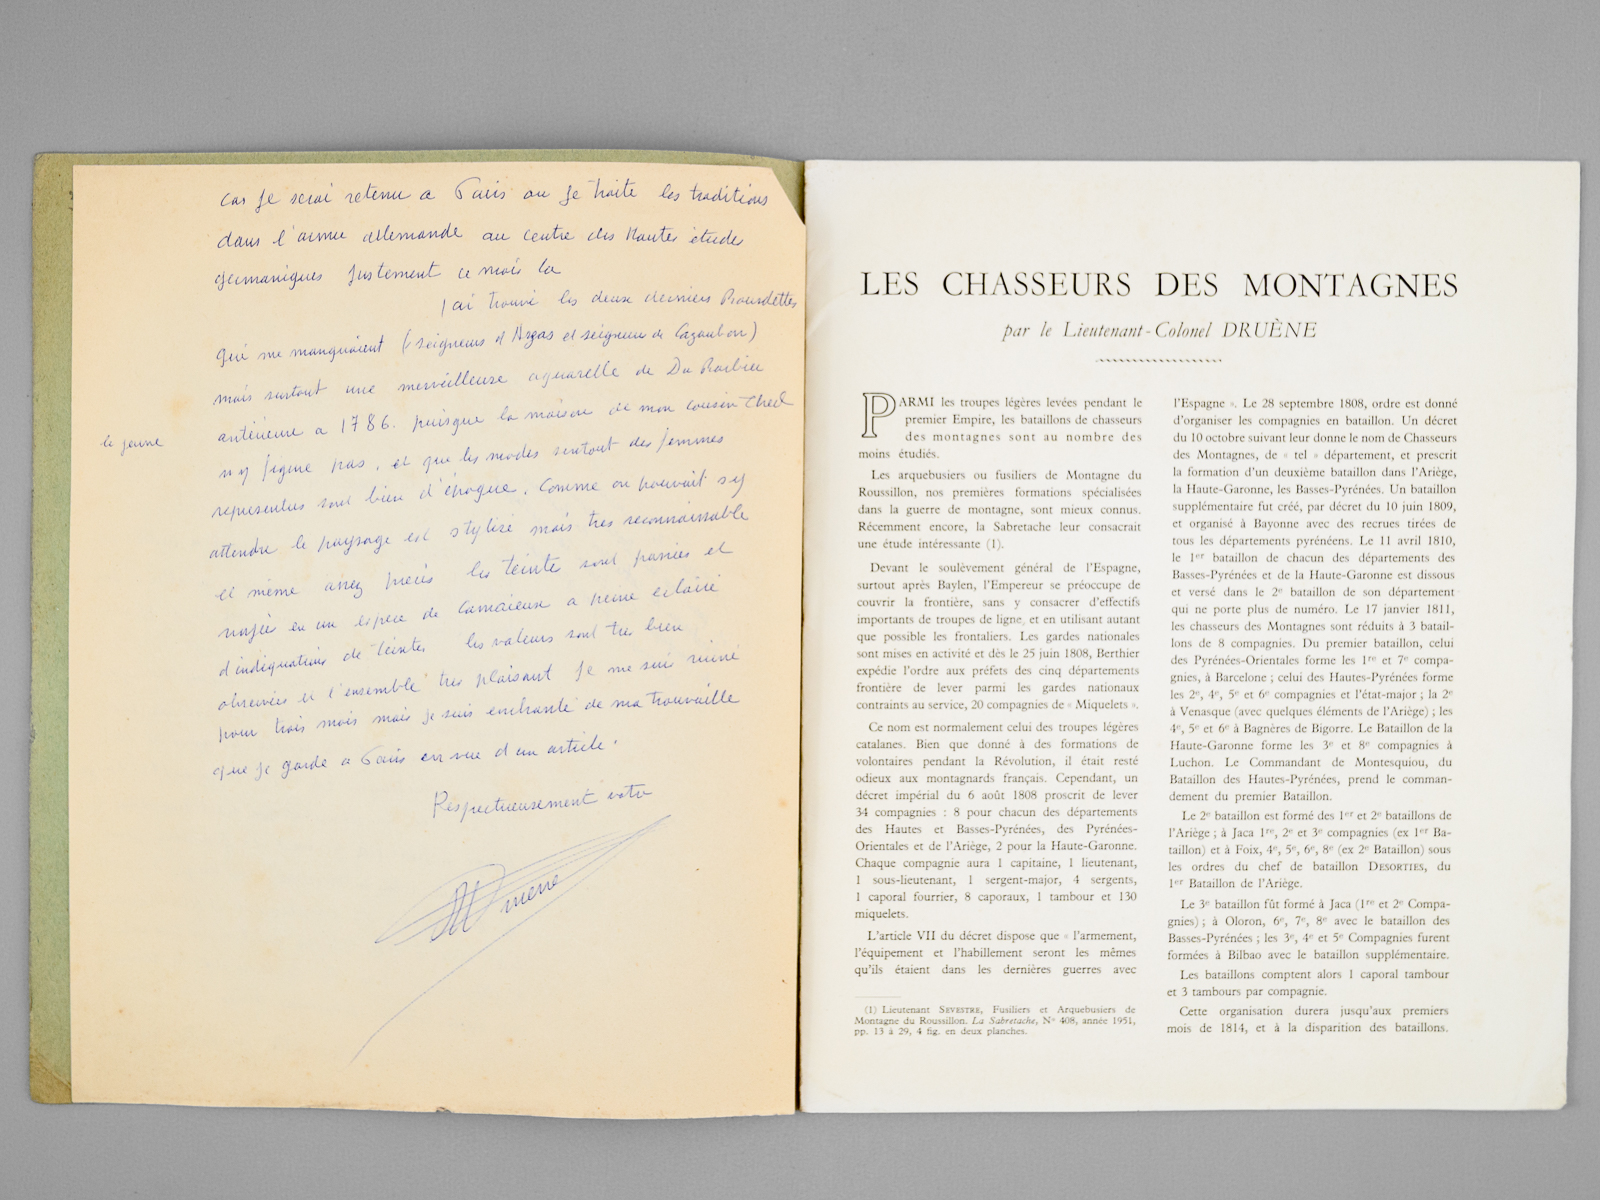 car je serai retenu a Paris ou je traite les traditions
dans l'armee allemande au centre des Hautes études
germaniques justement ce mois la
j'ai trouvé les deux derniers Bourdettes
qui me manquaient (seigneurs d'Argas et seigneur de Cazaubon)
mais surtout une merveilleuse aquarelle de Du Barbier
le jeune
antérieure a 1786. puisque la maison de mon cousin
n'y figure pas, et que les modes surtout des femmes
representées sont bien d'époque. Comme on pouvait s'y
attendre le paysage est stylisé mais tres reconnaissable
et même assez précis les teinte sont passées et
en un espece de Camaieux a peine éclairé
d'indiquations de teintes les valeurs sont tres bien
observées et l'ensemble tres plaisant Je me suis ruiné
pour trois mois mais je suis enchanté de ma trouvaille
que je garde a Paris en vue d'un article.
Respectueusement votre
Druene
LES CHASSEURS DES MONTAGNES
par le Lieutenant-Colonel DRUÈNE
PARMI les troupes légères levées pendant le
premier Empire, les bataillons de chasseurs
des montagnes sont au nombre des
moins étudiés.
Les arquebusiers ou fusiliers de Montagne du
Roussillon, nos premières formations spécialisées
dans la guerre de montagne, sont mieux connus.
Récemment encore, la Sabretache leur consacrait
une étude intéressante (1).
Devant le soulèvement général de l'Espagne,
surtout après Baylen, l'Empereur se préoccupe de
couvrir la frontière, sans y consacrer d'effectifs
importants de troupes de ligne, et en utilisant autant
que possible les frontaliers. Les gardes nationales
sont mises en activité et dès le 25 juin 1808, Berthier
expédie l'ordre aux préfets des cinq départements
frontière de lever parmi les gardes nationaux
contraints au service, 20 compagnies de « Miquelets ».
Ce nom est normalement celui des troupes légères
catalanes. Bien que donné à des formations de
volontaires pendant la Révolution, il était resté
odieux aux montagnards français. Cependant, un
décret impérial du 6 août 1808 proscrit de lever
34 compagnies : 8 pour chacun des départements
des Hautes et Basses-Pyrénées, des Pyrénées-
Orientales et de l'Ariège, 2 pour la Haute-Garonne.
Chaque compagnie aura 1 capitaine, 1 lieutenant,
1 sous-lieutenant, 1 sergent-major, 4 sergents,
1 caporal fourrier, 8 caporaux, 1 tambour et 130
miquelets.
L'article VII du décret dispose que « l'armement,
l'équipement et l'habillement seront les mêmes
qu'ils étaient dans les dernières guerres avec
(1) Lieutenant SEVESTRE, Fusiliers et Arquebusiers de
Montagne du Roussillon. La Sabretache, N° 408, année 1951,
pp. 13 à 29, 4 fig. en deux planches.
l'Espagne ». Le 28 septembre 1808, ordre est donné
d'organiser les compagnies en bataillon. Un décret
du 10 octobre suivant leur donne le nom de Chasseurs
des Montagnes, de « tel » département, et prescrit
la formation d'un deuxième bataillon dans l'Ariège,
la Haute-Garonne, les Basses-Pyrénées. Un bataillon
supplémentaire fut créé, par décret du 10 juin 1809,
et organisé à Bayonne avec des recrues tirées de
tous les départements pyrénéens. Le 11 avril 1810,
le 1er bataillon de chacun des départements des
Basses-Pyrénées et de la Haute-Garonne est dissous
et versé dans le 2e bataillon de son département
qui ne porte plus de numéro. Le 17 janvier 1811,
les chasseurs des Montagnes sont réduits à 3 batail-
lons de 8 compagnies. Du premier bataillon, celui
des Pyrénées-Orientales forme les 1re et 7e compa-
gnies, à Barcelone ; celui des Hautes-Pyrénées forme
les 2e, 4e, 5e et 6e compagnies et l'état-major ; la 2e
à Venasque (avec quelques éléments de l'Ariège) ; les
4e, 5e et 6e à Bagnères de Bigorre. Le Bataillon de la
Haute-Garonne forme les 3e et 8e compagnies à
Luchon. Le Commandant de Montesquiou, du
Bataillon des Hautes-Pyrénées, prend le comman-
dement du premier Bataillon.
Le 2e bataillon est formé des 1er et 2e bataillons de
l'Ariège ; à Jaca 1re, 2e et 3e compagnies (ex 1er Ba-
taillon) et à Foix, 4e, 5e, 6e, 8e (ex 2e Bataillon) sous
les ordres du chef de bataillon DESORTIES, du
1er Bataillon de l'Ariège.
Le 3e bataillon fût formé à Jaca (1re et 2e Compa-
gnies) ; à Oloron, 6e, 7e, 8e avec le bataillon des
Basses-Pyrénées ; les 3e, 4e et 5e Compagnies furent
formées à Bilbao avec le bataillon supplémentaire.
Les bataillons comptent alors 1 caporal tambour
et 3 tambours par compagnie.
Cette organisation durera jusqu'aux premiers
mois de 1814, et à la disparition des bataillons.